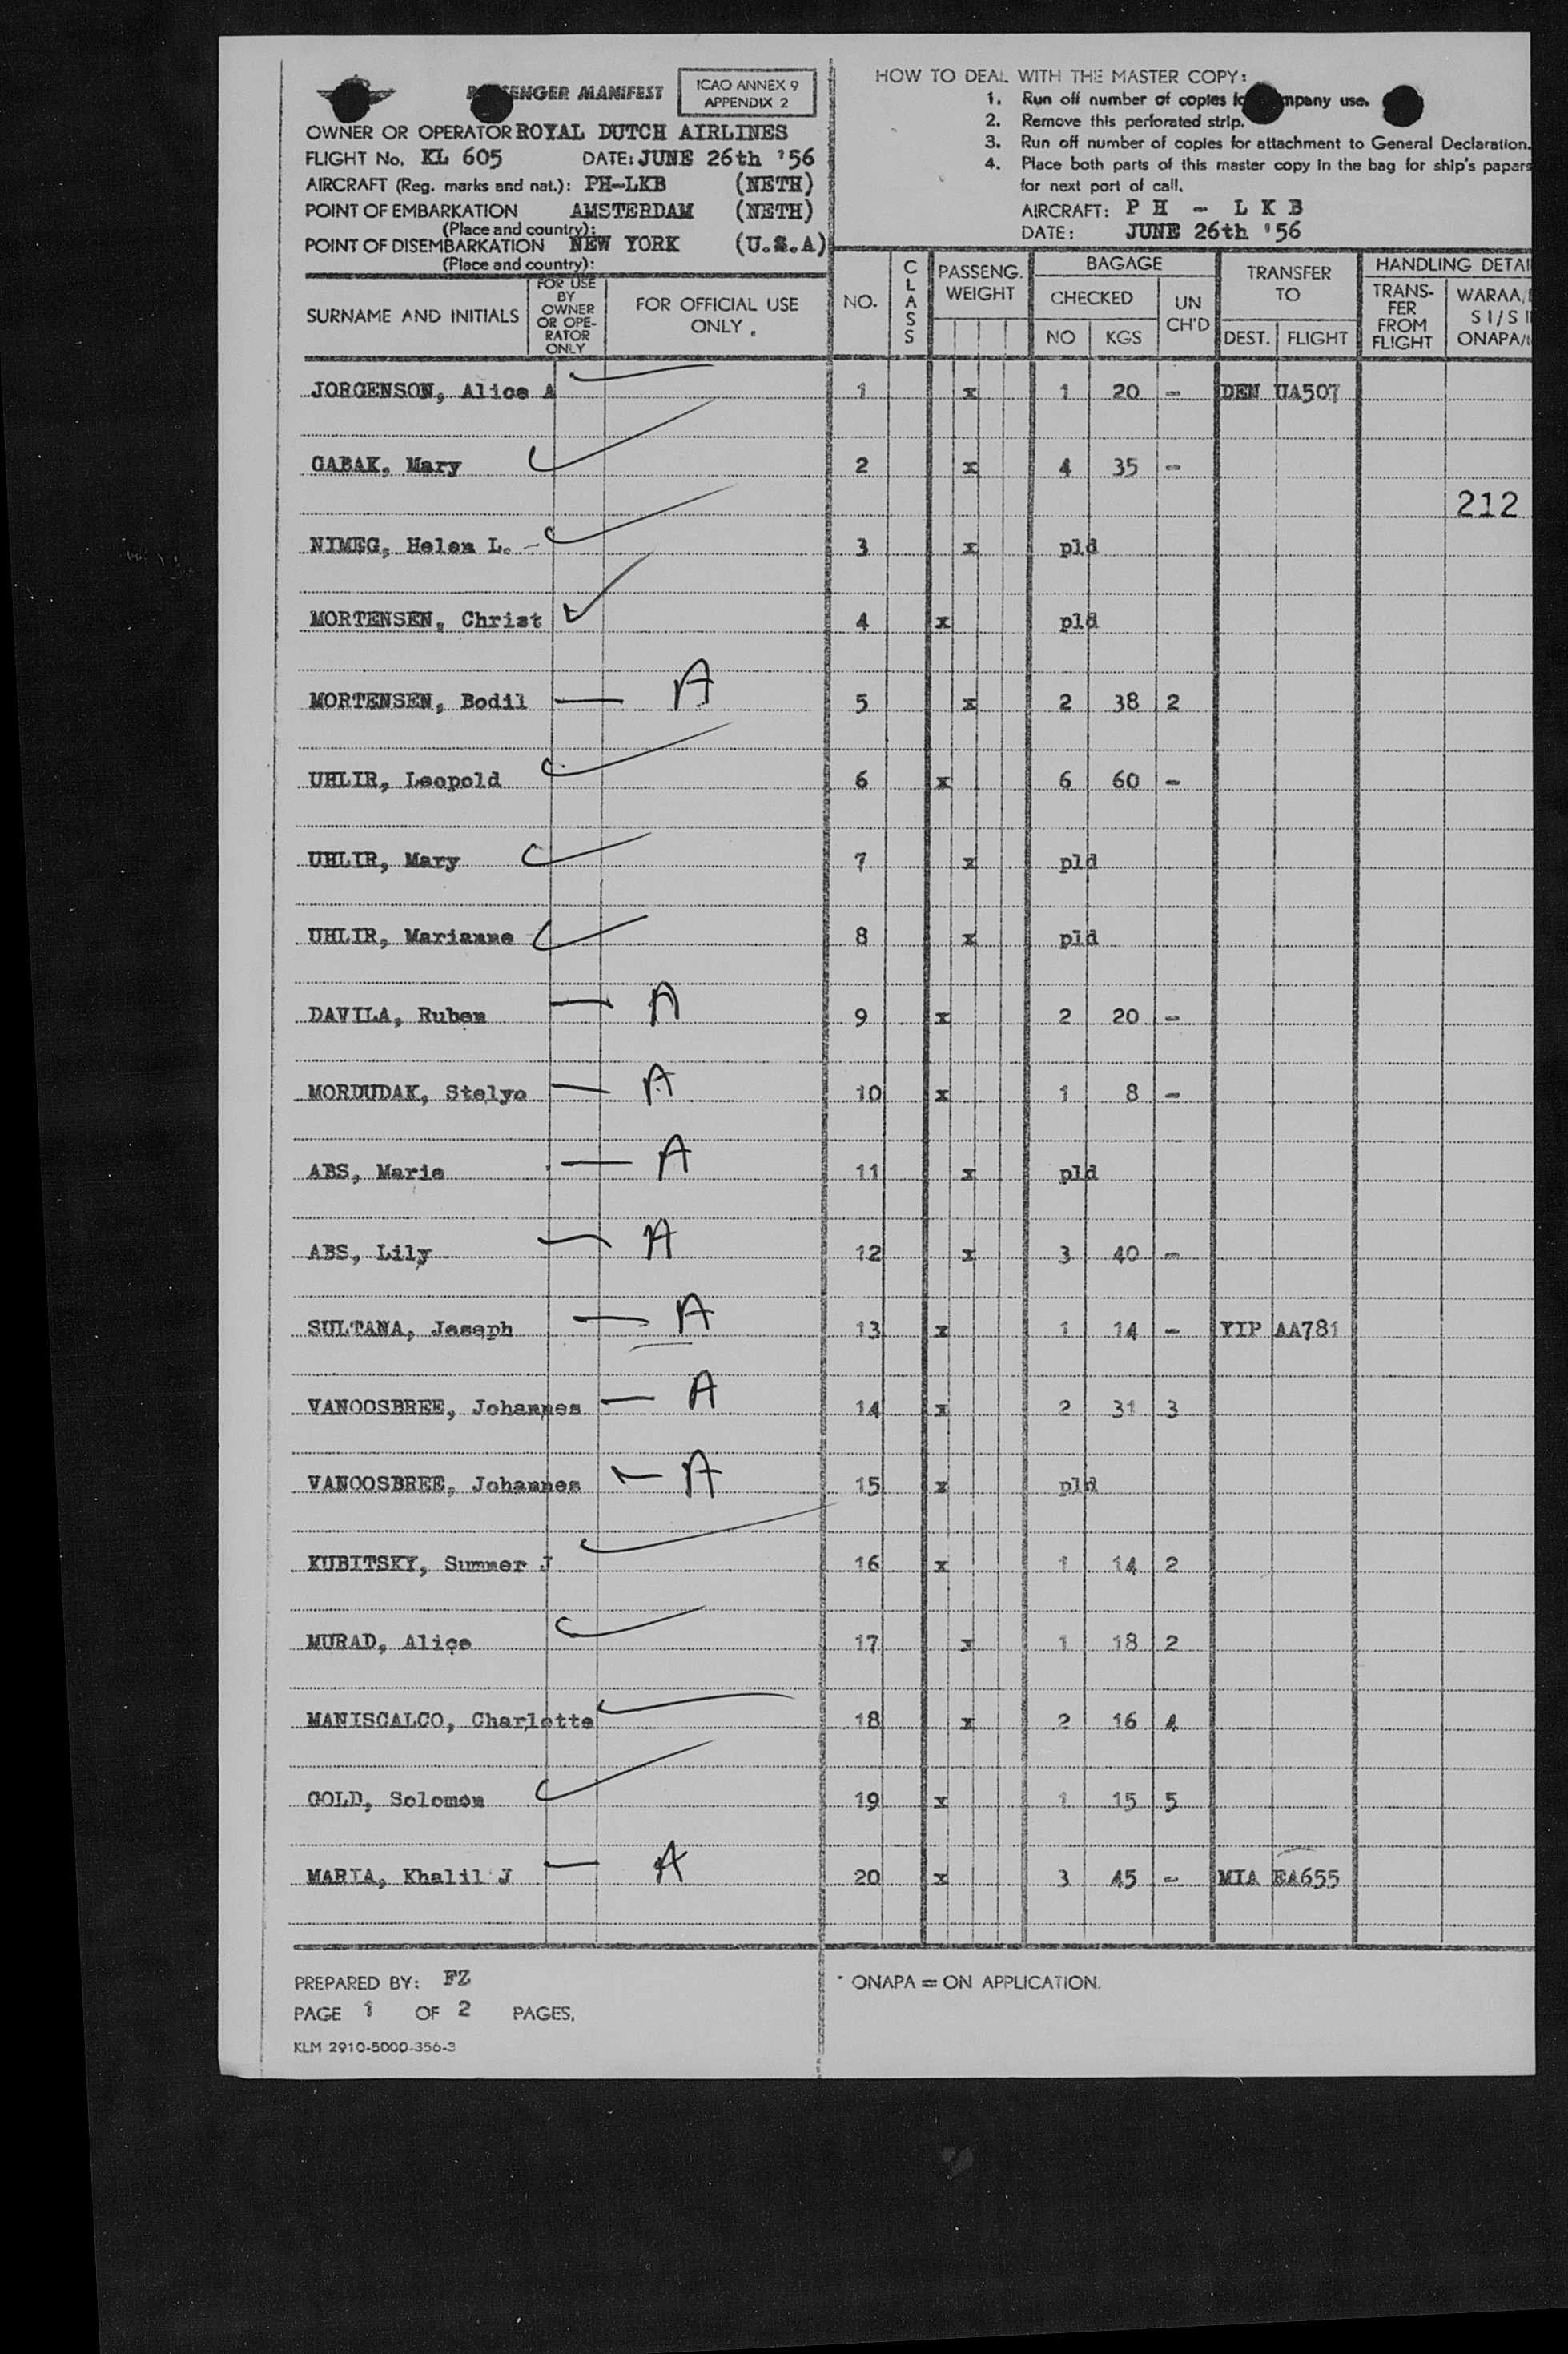 PASSENGER MANIFEST
ICAO ANNEX 9
APPENDIX 2
OWNER OR OPERATOR ROYAL DUTCH AIRLINES
FLIGHT No. KL 605 DATE: JUNE 26th '56
AIRCRAFT (Reg. marks and nat.): PH-LKB (NETH)
POINT OF EMBARKATION AMSTERDAM (NETH)
(Place and country):
POINT OF DISEMBARKATION NEW YORK (U.S.A)
(Place and country):
HOW TO DEAL WITH THE MASTER COPY:
1. Run off number of copies mpany use.
2. Remove this perforated strip.
3. Run off number of copies for attachment to General Declaration.
4. Place both parts of this master copy in the bag for ship's papers
for next port of call.
AIRCRAFT: P H - L K B
DATE: JUNE 26th '56
SURNAME AND INITIALS
FOR USE
BY
OWNER
OR OPE-
RATOR
ONLY
FOR OFFICIAL USE
ONLY.
NO.
CLASS
PASSENG.
WEIGHT
BAGAGE
CHECKED
NO KGS
UN
CH'D
TRANSFER
TO
DEST. FLIGHT
HANDLING DETAI
TRANS-
FER
FROM
FLIGHT
WARAA/
SI/S I
ONAPA/
JORGENSON, Alice A 1 x 1 20 - DEN UA507
GABAK, Mary 2 x 4 35 -
212
NIMEG, Helen L. - 3 x pld
MORTENSEN, Christ 4 x pld
MORTENSEN, Bodil — A 5 x 2 38 2
UHLIR, Leopold 6 x 6 60 -
UHLIR, Mary 7 x pld
UHLIR, Marianne 8 x pld
DAVILA, Ruben — A 9 x 2 20 -
MORDUDAK, Stelyo — A 10 x 1 8 -
ABS, Marie — A 11 x pld
ABS, Lily — A 12 x 3 40 -
SULTANA, Joseph — A 13 x 1 14 - YIP AA781
VANOOSBREE, Johannes — A 14 x 2 31 3
VANOOSBREE, Johannes — A 15 x pld
KUBITSKY, Summer J 16 x 1 14 2
MURAD, Alice 17 x 1 18 2
MANISCALCO, Charlotte 18 x 2 16 4
GOLD, Solomon 19 x 1 15 5
MARIA, Khalil J — A 20 x 3 45 - MIA EA655
PREPARED BY: FZ
PAGE 1 OF 2 PAGES.
KLM 2910-5000-356-3
* ONAPA = ON APPLICATION.